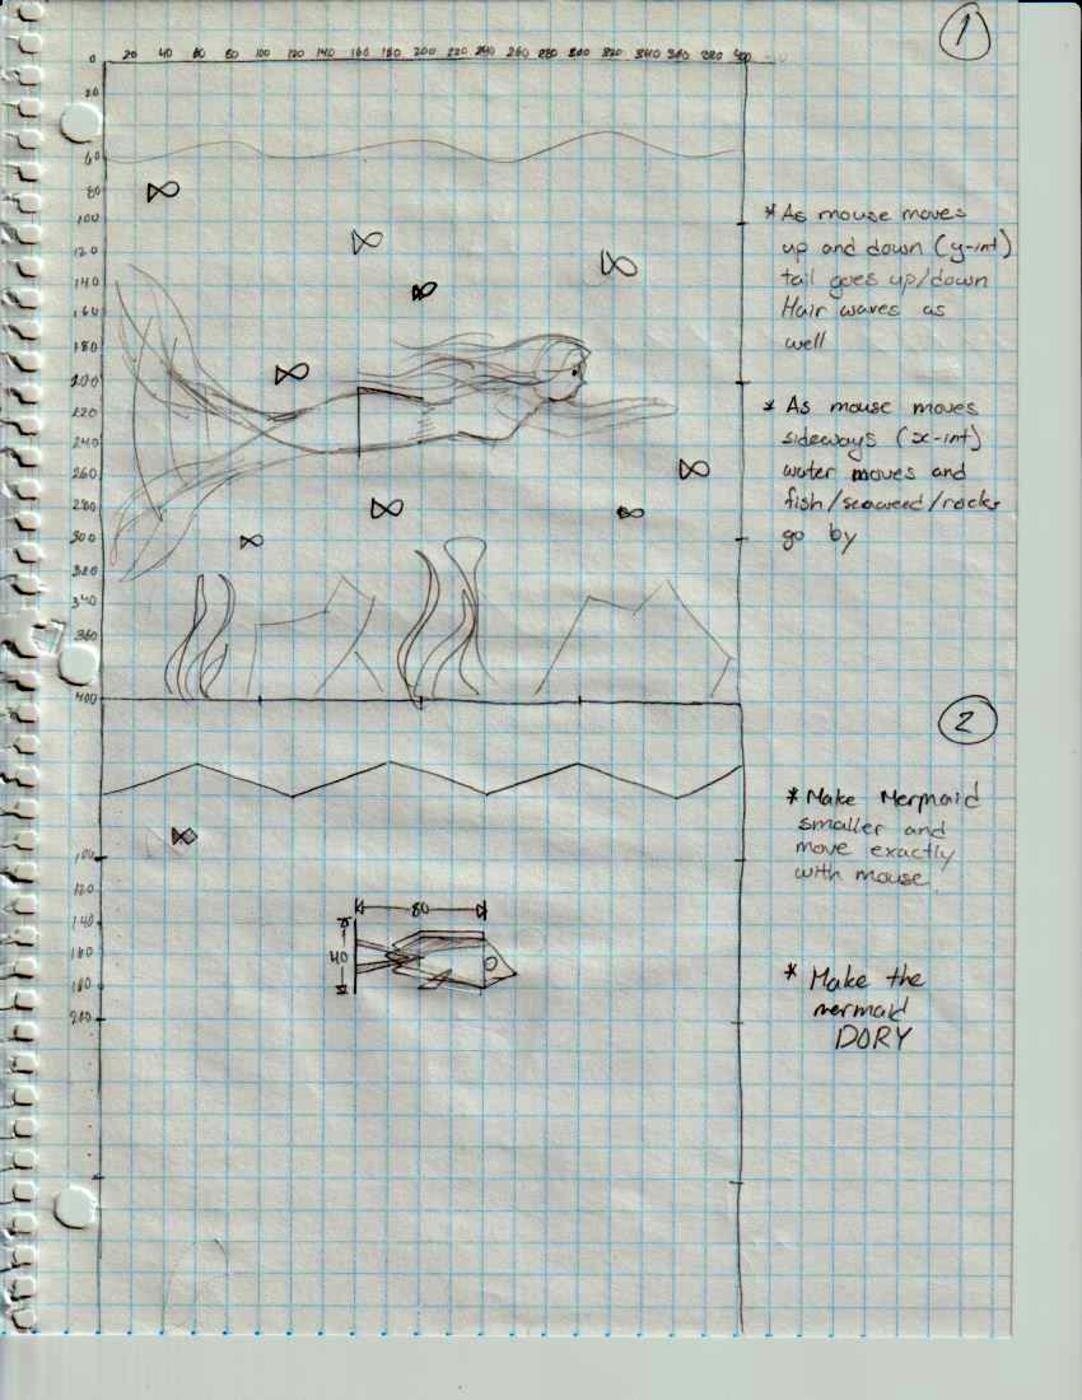 1
20 40 60 80 100 120 140 160 180 200 220 240 260 280 300 320 340 360 380 400
0
20
60
80
100
120
140
160
180
200
220
240
260
280
300
320
340
360
400
* As mouse moves
up and down (y-int)
tail goes up/down
Hair waves as
well
* As mouse moves
sideways (x-int)
water moves and
fish/seaweed/rocks
go by
2
* Make Mermaid
smaller and
move exactly
with mouse.
100
120
140
160
180
200
80
40
* Make the
mermaid
DORY